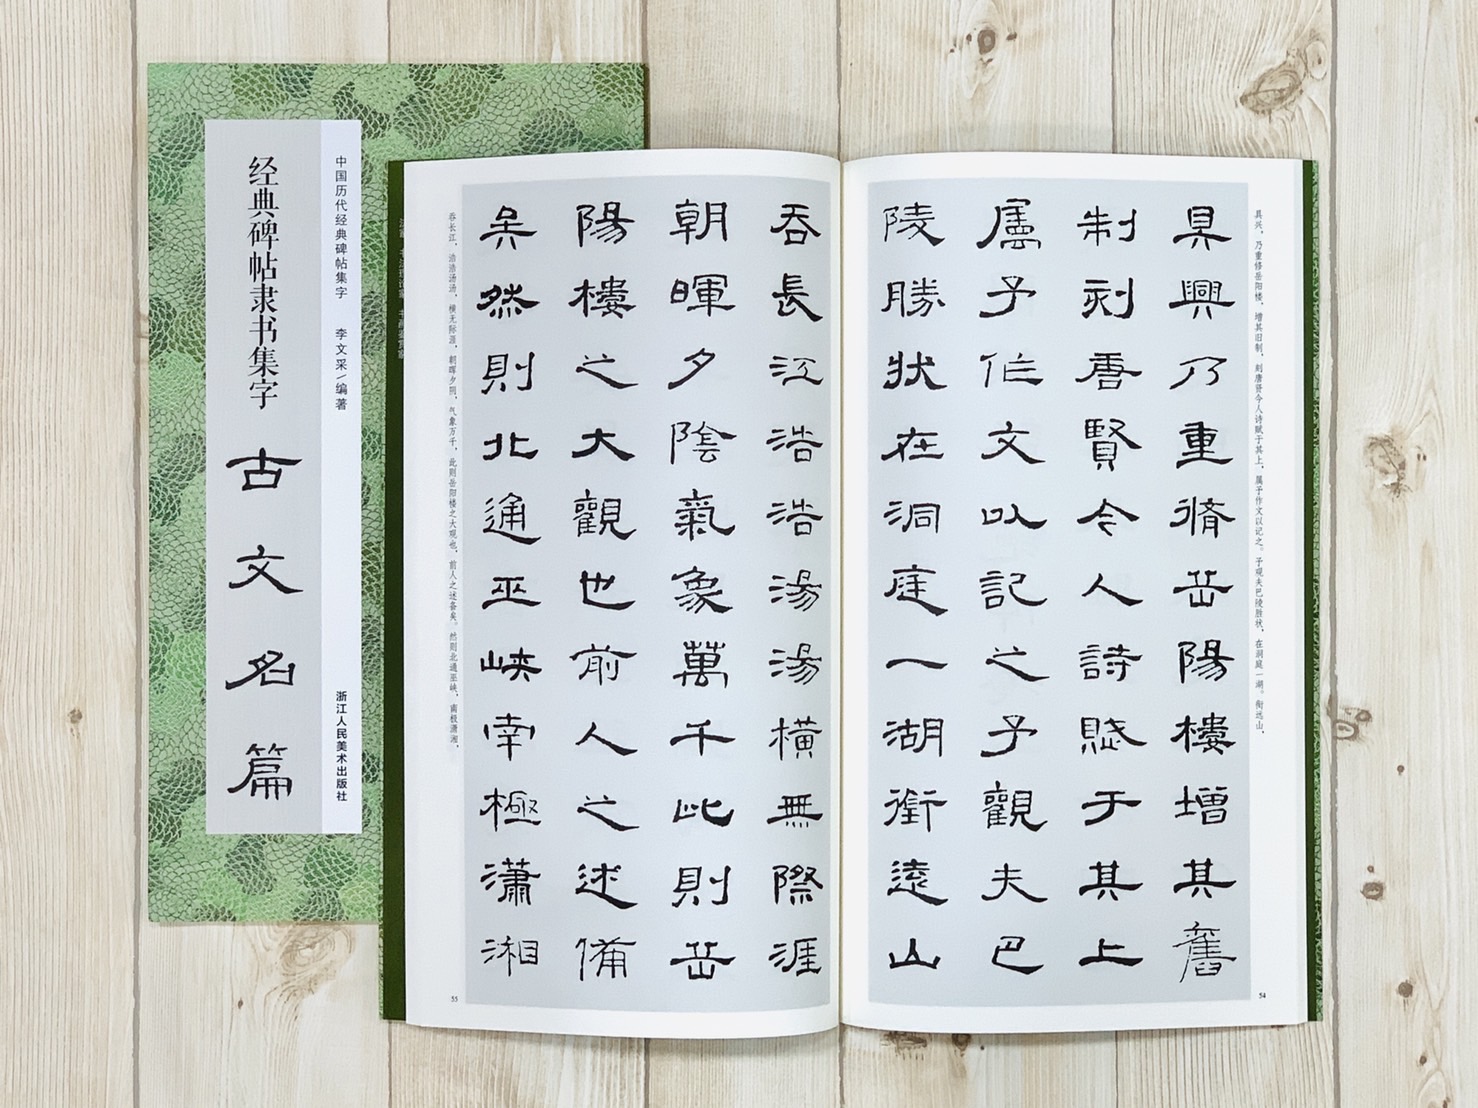 中国历代经典碑帖集字 李文采/编著
浙江人民美术出版社
经典碑帖隶书集字 古文名篇
具兴，乃重修岳阳楼，增其旧制，刻唐贤今人诗赋于其上，属予作文以记之。予观夫巴陵胜状，在洞庭一湖。衔远山，
具興乃重脩岳陽樓增其舊
制刻唐賢今人詩賦于其上
屬予作文以記之予觀夫巴
陵勝狀在洞庭一湖銜遠山
54
吞長江浩浩湯湯橫無際涯
朝暉夕陰氣象萬千此則岳
陽樓之大觀也前人之述備
矣然則北通巫峽南極瀟湘
吞长江，浩浩汤汤，横无际涯，朝晖夕阴，气象万千，此则岳阳楼之大观也，前人之述备矣。然则北通巫峡，南极潇湘，
55